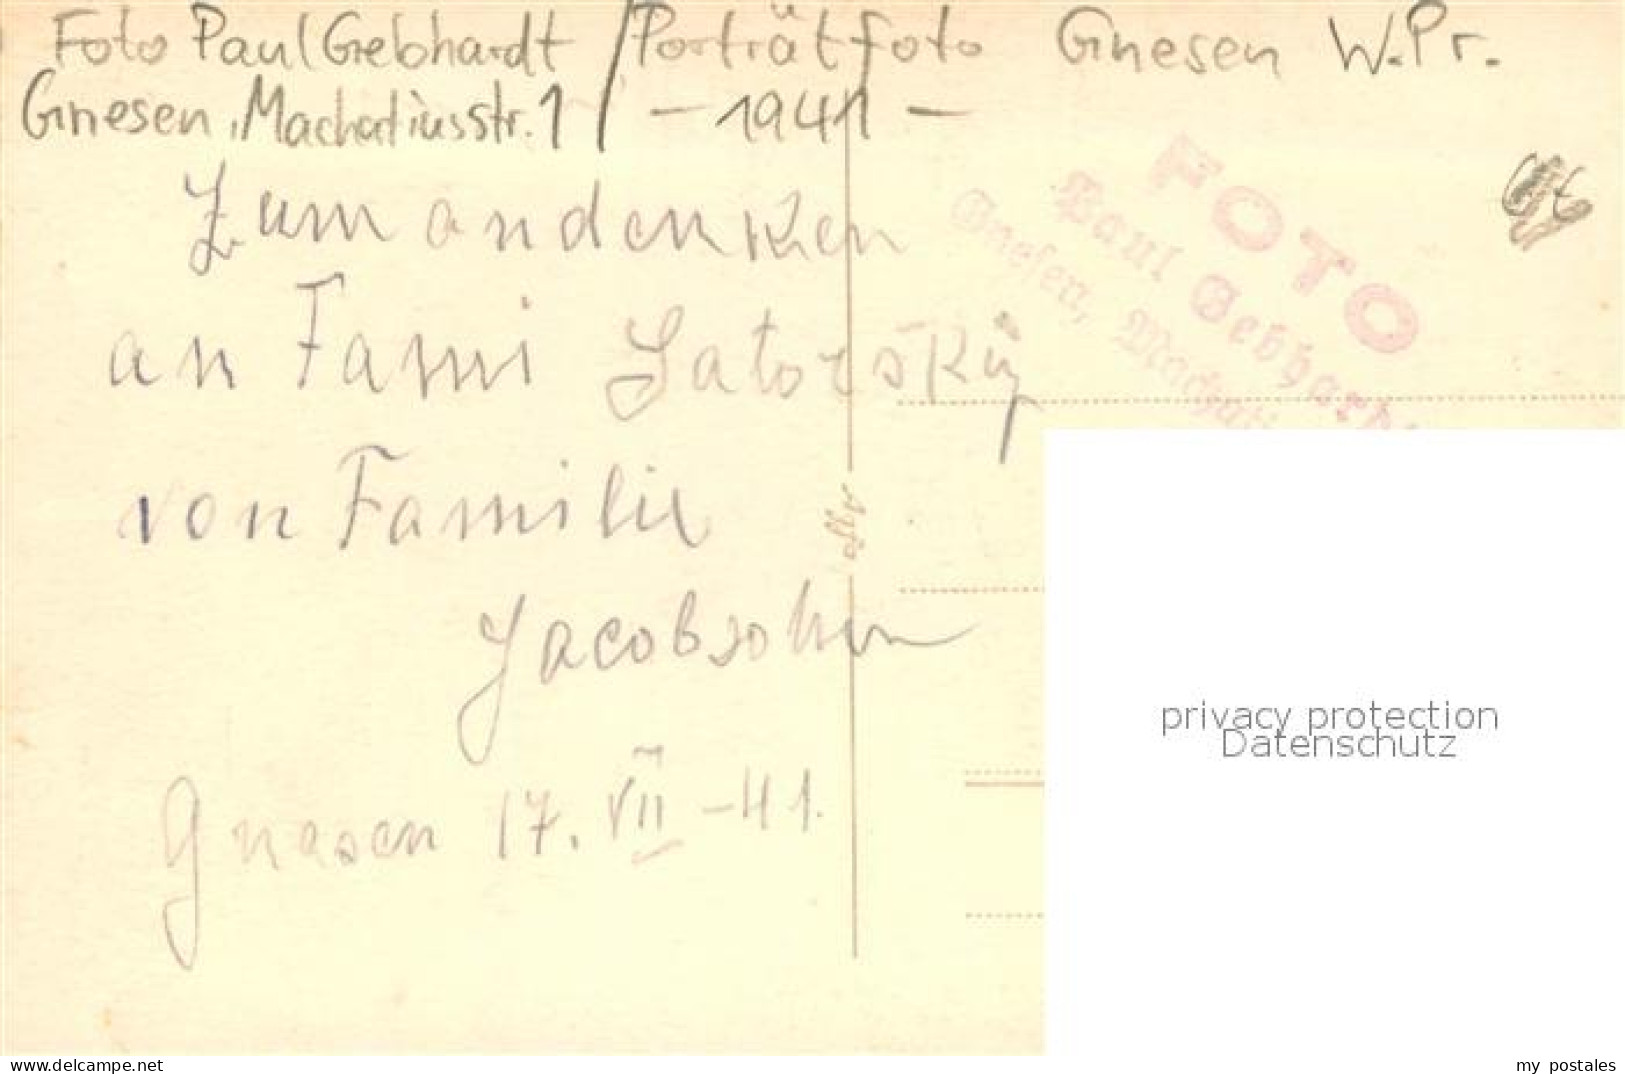 Foto Paul Gebhardt / Porträtfoto Gnesen W.Pr.
Gnesen, Machatiusstr. 1 / - 1941 -
Zum andenken
an Fami Satorsky
von Familie
Jacobsohn
Gnesen 17. VII - 41.
FOTO
Paul Gebhardt
Gnesen, Machati
Agfa
privacy protection
Datenschutz
www.delcampe.net
my_postales